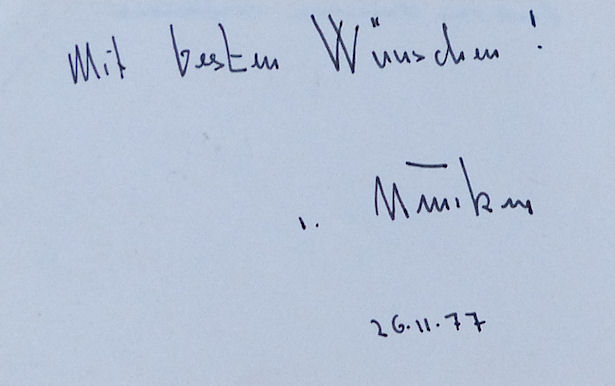 Mit besten Wünschen!
26.11.77